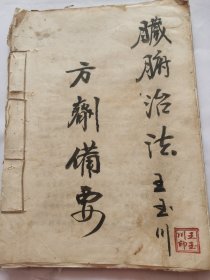 臓腑治法
王玉川
方剤備要
王玉
川印